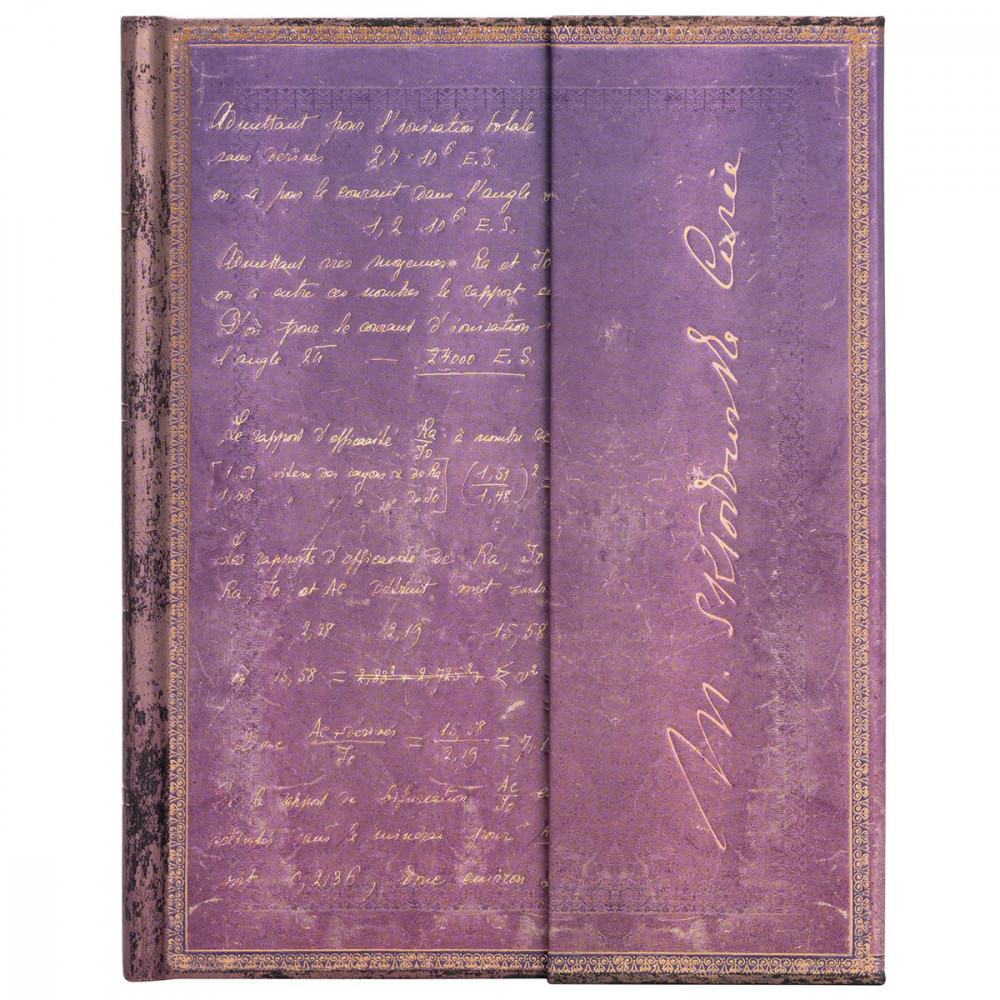 Admettant pour l'ionisation totale
sans dérivés 2,4 · 10⁶ E.S.
on a, pour le courant dans l'angle
1,2 10⁶ E.S.
Admettant vies moyennes Ra et Io
on a entre ces nombres le rapport
D'où pour le courant d'ionisation
l'angle 2π — 27000 E.S.
Le rapport d'efficacité Ra/Io à nombre de
[1,51 vitesse des rayons α de Ra] (1,51/1,48)² =
1,48 " " " " de Io]
Les rapports d'efficacité de Ra, Io
Ra, Io et Ac détruit sont
2,28 2,19 15,58
15,58 = v²
Donc Ac + dérivés/Io = 15,58/2,19 = 7,1
le rapport de bifurcation Ac/Io
dans le minerai pour
0,2136, donc environ
M. Skłodowska Curie